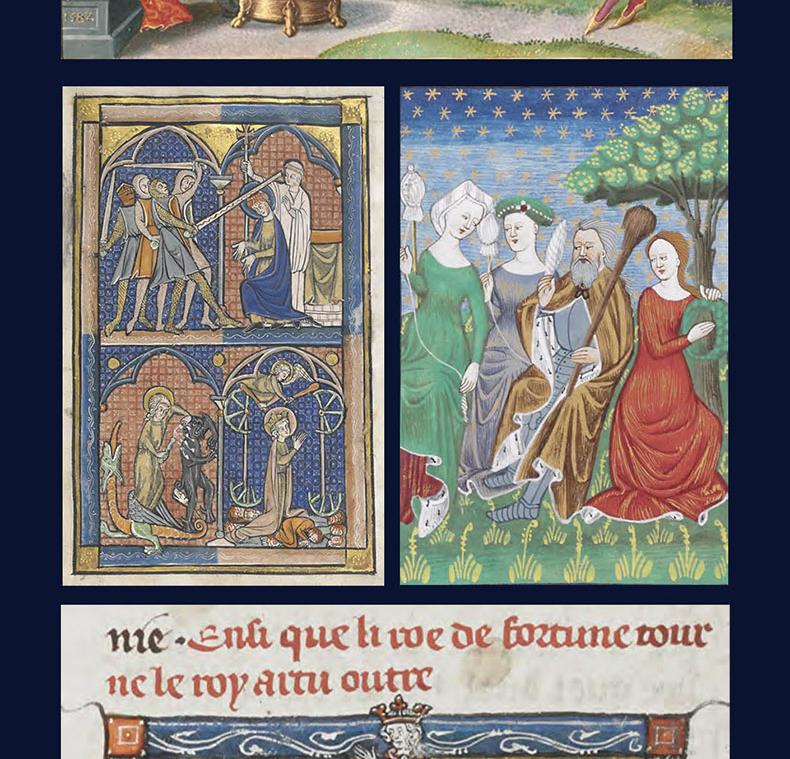 1582
nie · Ensi que li roe de fortune tour
ne le roy artu outre